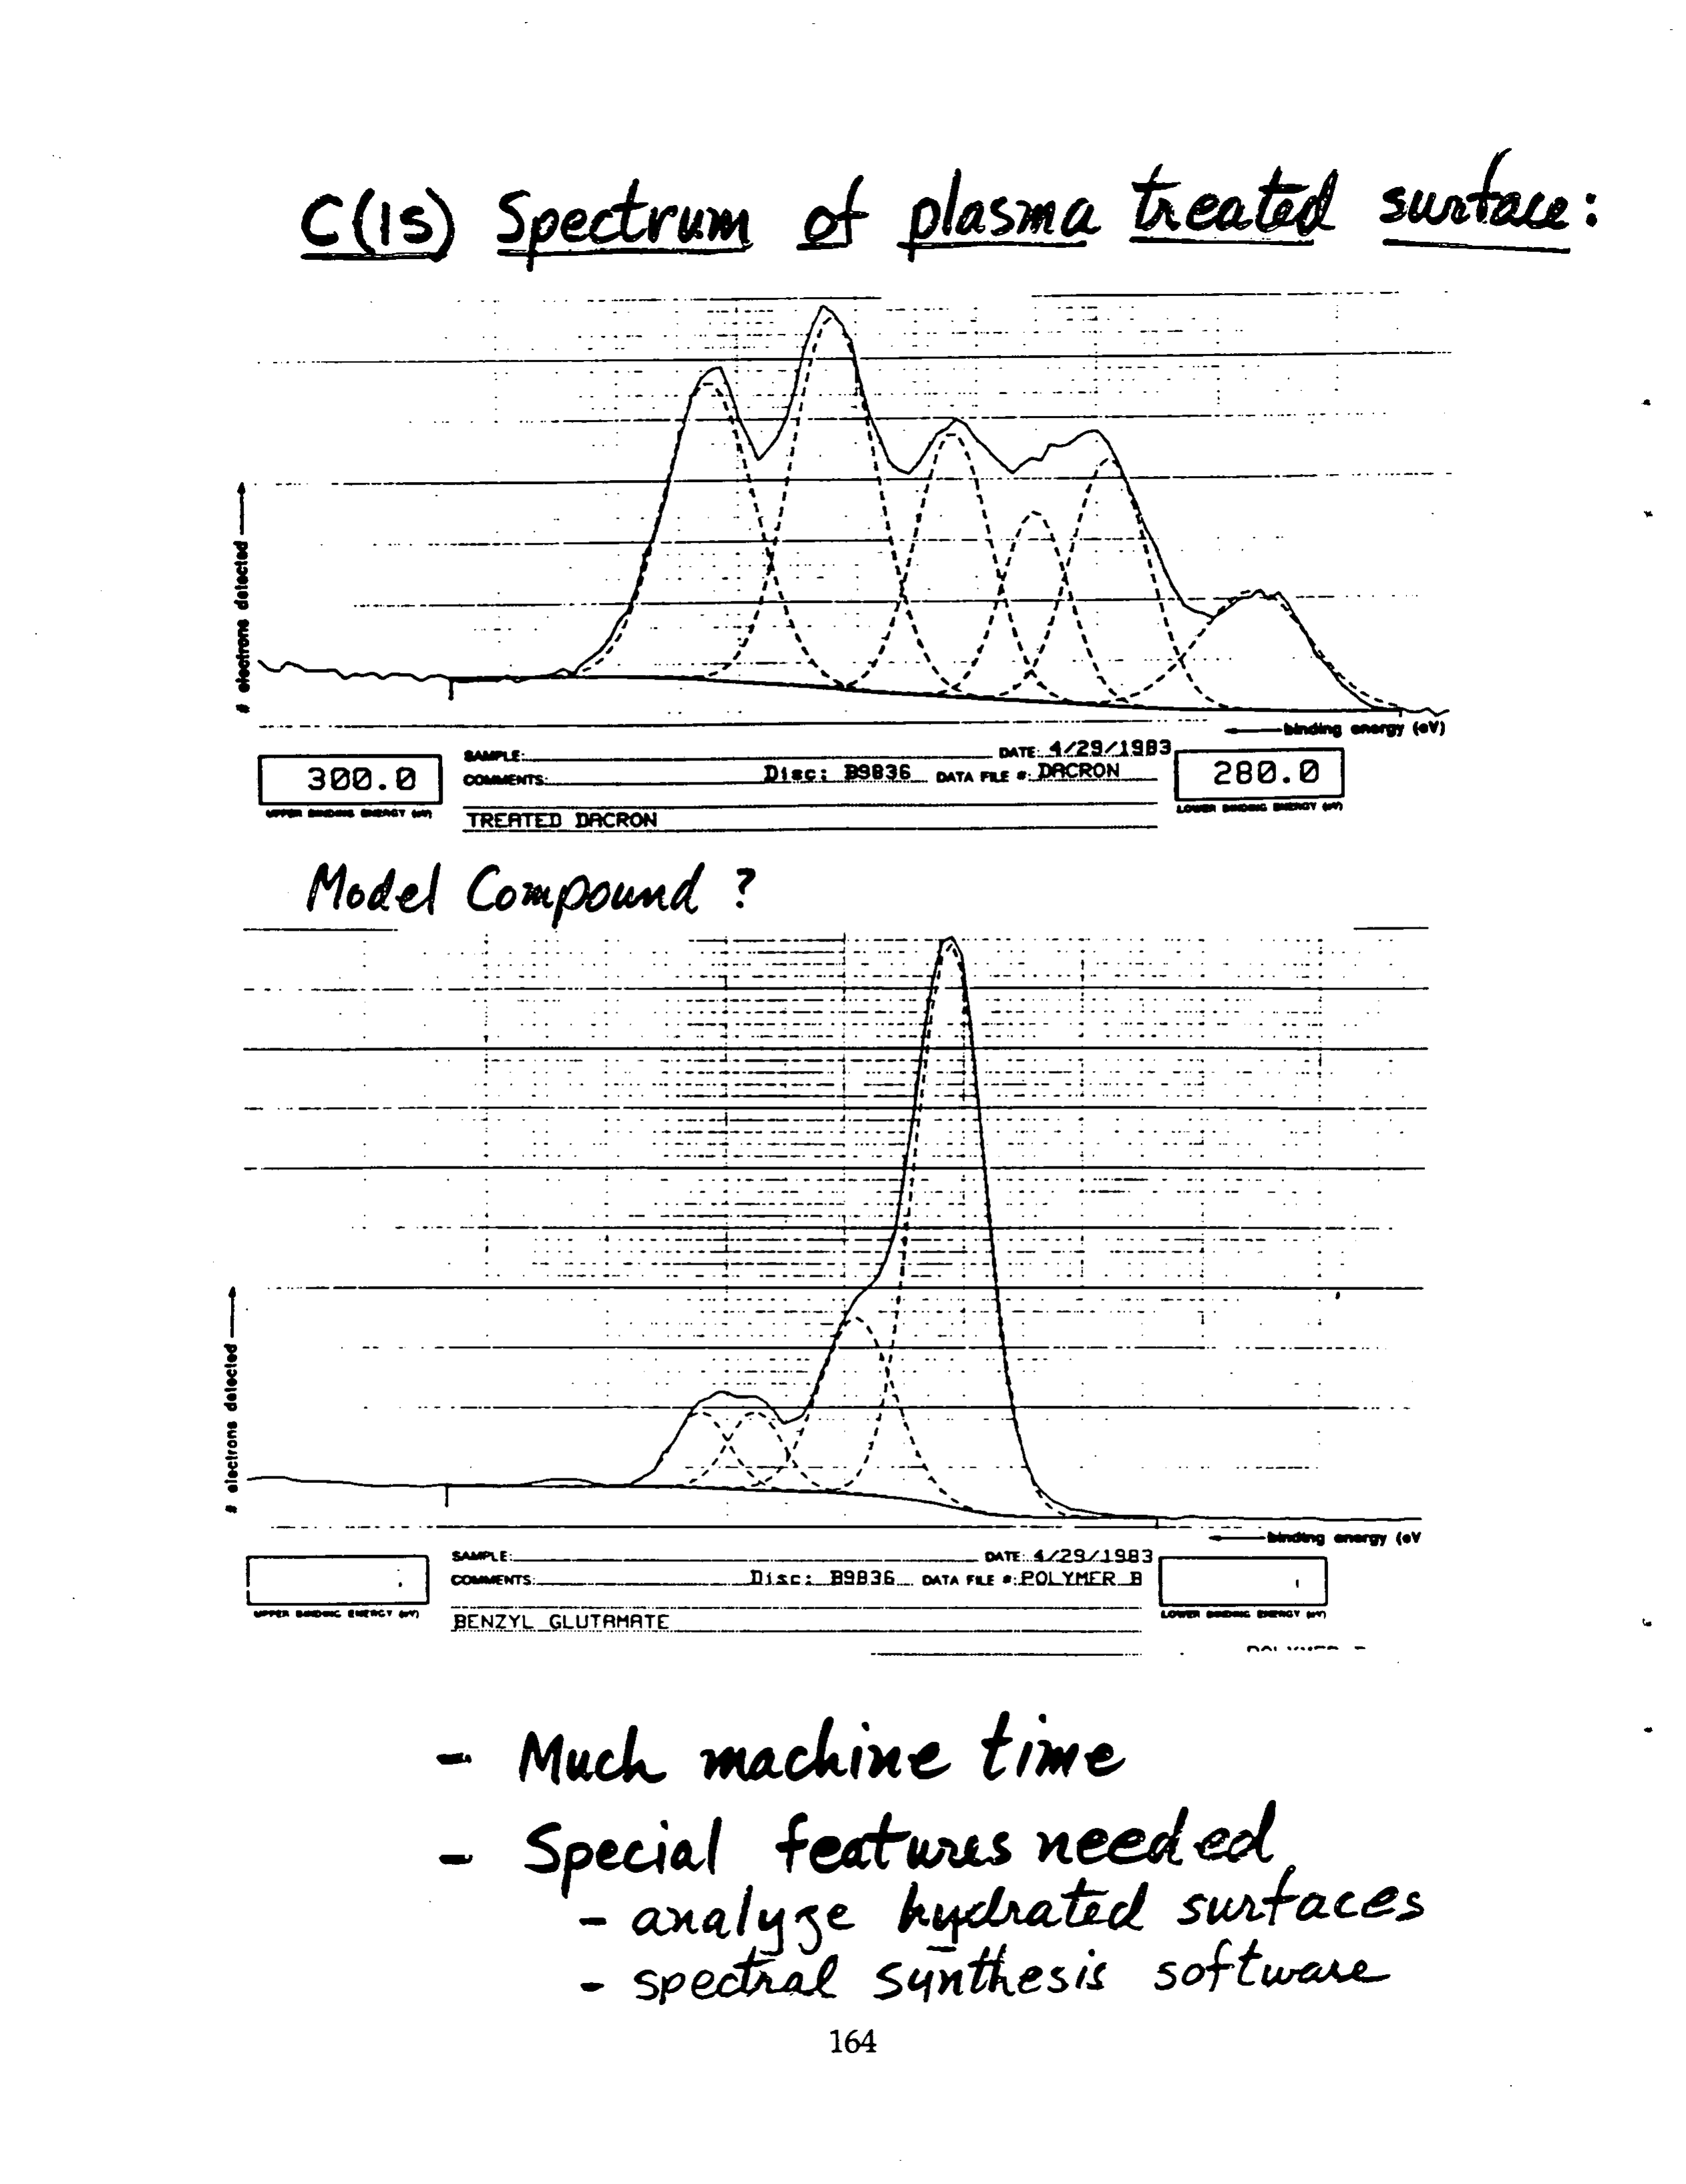 C(1s) Spectrum of plasma treated surface:
# electrons detected
binding energy (eV)
300.0
UPPER BINDING ENERGY (eV)
SAMPLE: DATE: 4/29/1983
COMMENTS: Disc: B9836 DATA FILE #: DACRON
TREATED DACRON
280.0
LOWER BINDING ENERGY (eV)
Model Compound ?
# electrons detected
binding energy (eV
UPPER BINDING ENERGY (eV)
SAMPLE: DATE: 4/29/1983
COMMENTS: Disc: B9836 DATA FILE #: POLYMER B
BENZYL GLUTAMATE
LOWER BINDING ENERGY (eV)
- Much machine time
- Special features needed
- analyze hydrated surfaces
- spectral synthesis software
164